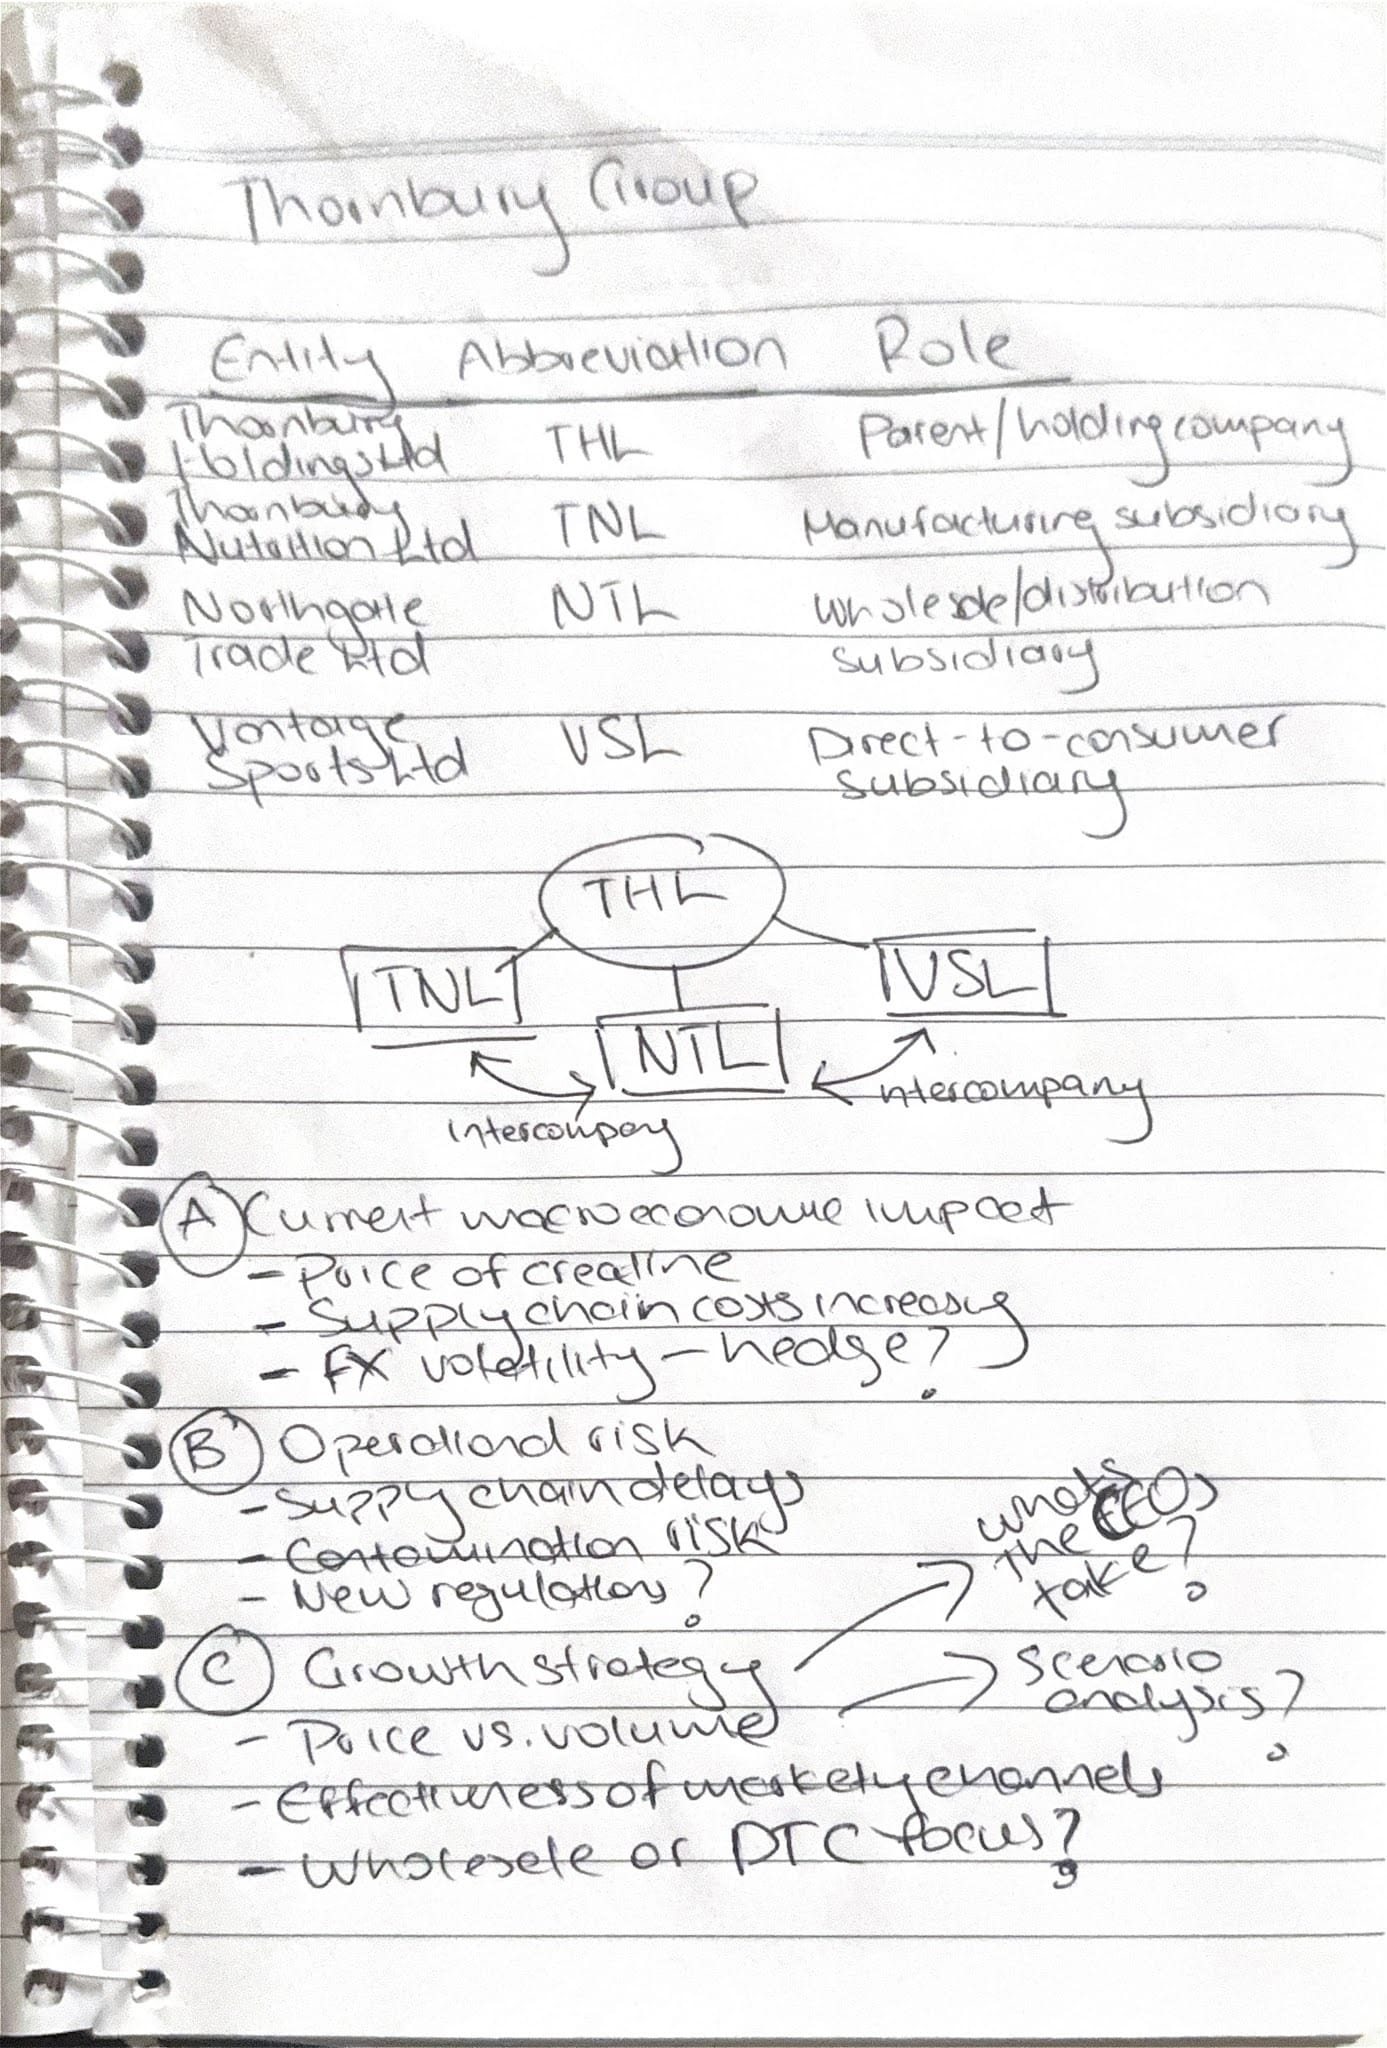 Thornbury Group
Entity Abbreviation Role
Thornbury
Holdings Ltd THL Parent/holding company
Thornbury
Nutrition Ltd TNL Manufacturing subsidiary
Northgate NTL Wholesale/distribution
Trade Ltd subsidiary
Vantage
Sports Ltd VSL Direct-to-consumer
subsidiary
THL
TNL VSL
NTL
intercompany
intercompany
A Current macroeconomic impact
- Price of creatine
- Supply chain costs increasing
- FX volatility - hedge?
B Operational risk
- Supply chain delays
- Contamination risk
- New regulations?
What's
the CEOs
take?
C Growth strategy
Scenario
analysis?
- Price vs. volume
- Effectiveness of marketing channels
- Wholesale or DTC focus?